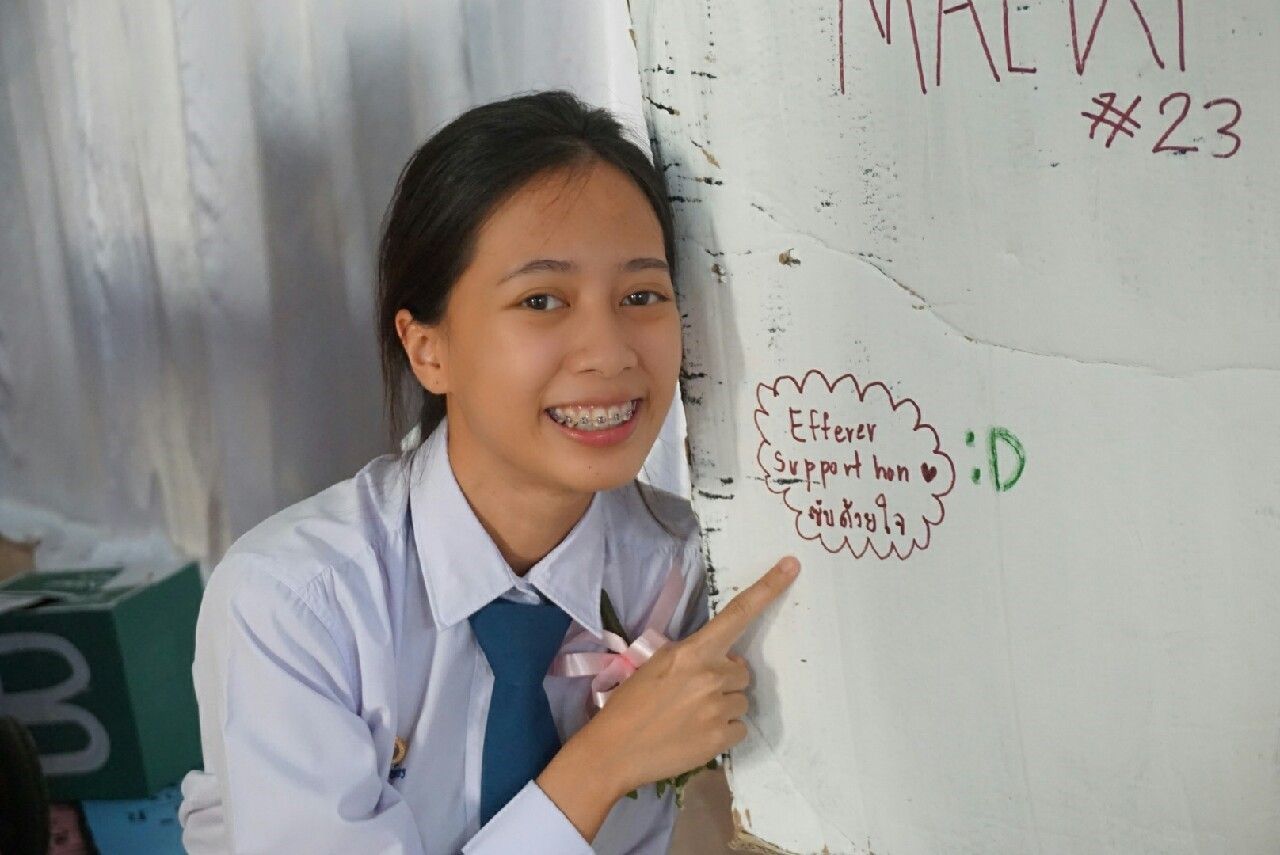 #23
Efferer
Support hon ♥
ซับด้วยใจ
:D